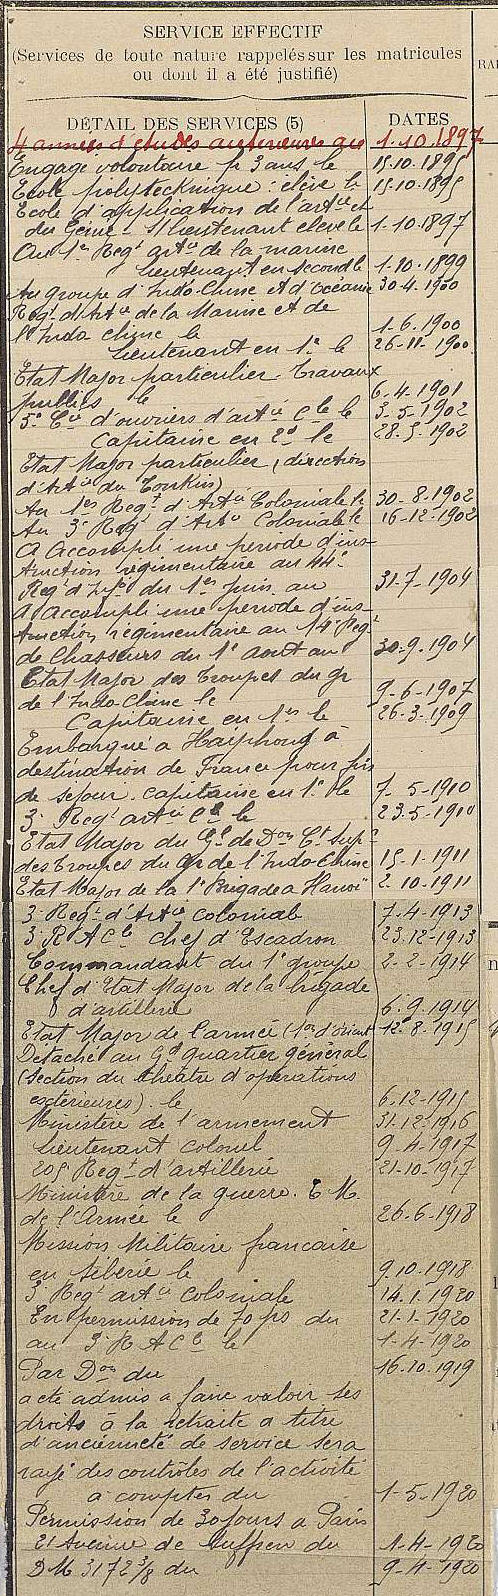 SERVICE EFFECTIF
(Services de toute nature rappelés sur les matricules
ou dont il a été justifié)
DÉTAIL DES SERVICES (5) DATES
4 années d'études antérieures au 1.10.1897
Engagé volontaire pr 3 ans le 15.10.1895
Ecole polytechnique : élève le 15.10.1895
Ecole d'application de l'artie et
du Génie - S/lieutenant élève le 1-10-1897
Au 1er Regt artie de la marine
lieutenant en second le 1-10-1899
Au groupe d'Indo-Chine et d'Océanie 30-4-1900
Regt d'Artie de la Marine et de
l'Indo chine le 1-6-1900
Lieutenant en 1er le 26-11-1900
Etat Major particulier - Travaux
publics le 6.4-1901
5e Cie d'ouvriers d'artie cle le 3-5-1902
Capitaine en 2d le 28.5-1902
Etat Major particulier (direction
d'Artie du Tonkin) 30-8-1902
Au 1er Regt d'Artie Coloniale le
Au 3e Regt d'Artie Coloniale le 16-12-1902
A accompli une période d'ins-
truction régimentaire au 44e
Regt d'Infie du 1er juin au 31.7-1904
A accompli une période d'ins-
truction régimentaire au 14e Regt
de Chasseurs du 1er Aout au 30-9-1904
Etat Major des Troupes du gr
de l'Indo-Chine le 9-6-1907
Capitaine en 1er le 26-3-1909
Embarqué à Haïphong à
destination de France pour fin
de séjour. capitaine en 1er le 7-5-1910
3e Regt artie Cle le 23.5-1910
Etat Major du Gal de Don Ct Supr
des Troupes du Gr de l'Indo-Chine 15-1-1911
Etat Major de la 1e Brigade a Hanoï 2-10-1911
3e Regt d'Artie coloniale 7-4-1913
3e R A Cle chef d'Escadron 23.12-1913
Commandant du 1er groupe 2-2-1914
Chef d'Etat Major de la brigade
d'artillerie 6.9.1914
Etat Major de l'armée d'orient 12.8.1915
Détaché au Gd Quartier général
(section du théâtre d'opérations
extérieures) le 6.12-1915
Ministère de l'armement 31.12-1916
Lieutenant colonel 9-4-1917
205 Regt d'artillerie 21-10-1917
Ministère de la guerre. E M
de l'Armée le 26-6-1918
Mission Militaire française
en Sibérie le 9.10-1918
3e Regt artie coloniale 14.1-1920
En permission de 70 jrs du 21-1-1920
au 3e R A Cle le 1-4-1920
Par Don du 16.10.1919
a été admis a faire valoir ses
droits à la retraite a titre
d'ancienneté de service sera
rayé des contrôles de l'activité
à compter du 1-5-1920
Permission de 30 jours a Paris
21 Avenue de Suffren du 1-4-1920
DM 3172 3/8 du 9-4-1920